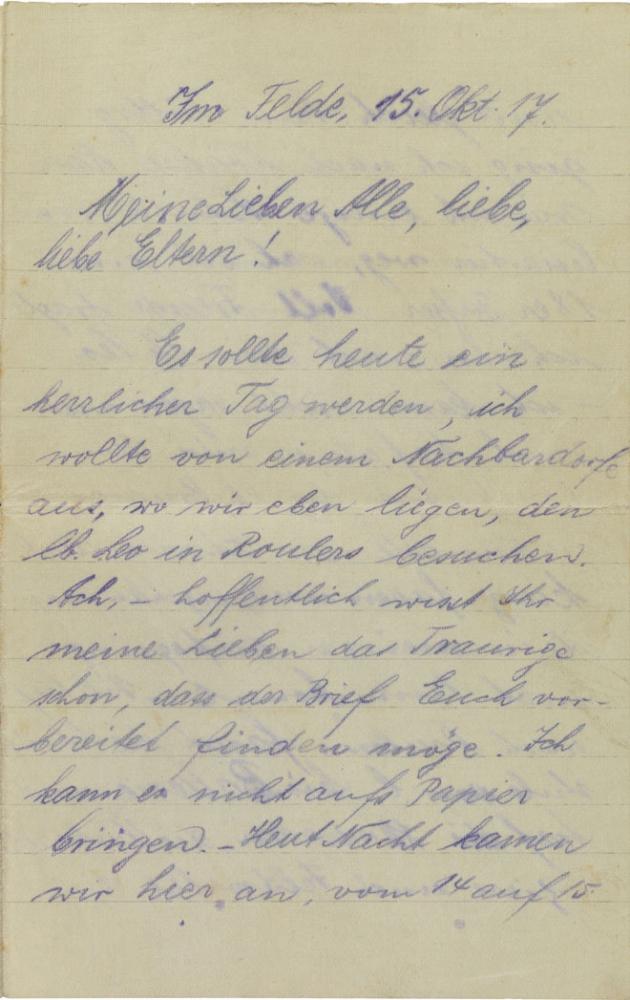 Im Felde, 15. Okt. 17.
Meine Lieben Alle, liebe,
liebe Eltern!
Es sollte heute ein
herrlicher Tag werden, ich
wollte von einem Nachbardorfe
aus, wo wir eben liegen, den
lb. Leo in Roulers besuchen.
Ach, – hoffentlich wisst Ihr
meine Lieben das Traurige
schon, dass der Brief Euch vor-
bereitet finden möge. Ich
kann es nicht aufs Papier
bringen. – Heut Nacht kamen
wir hier an, vom 14 auf 15.